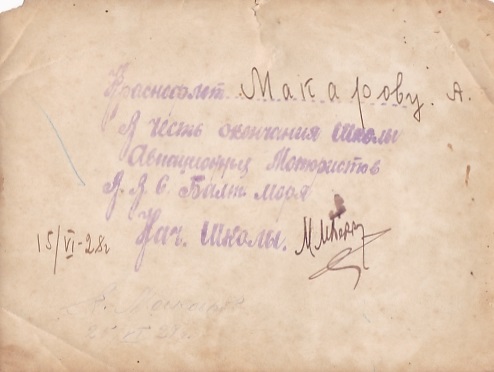 Краснофлот. Макарову. А.
В честь окончания Школы
Авиационных Мотористов
В. В. С. Балт. Моря
15/VI-28г Нач. Школы.